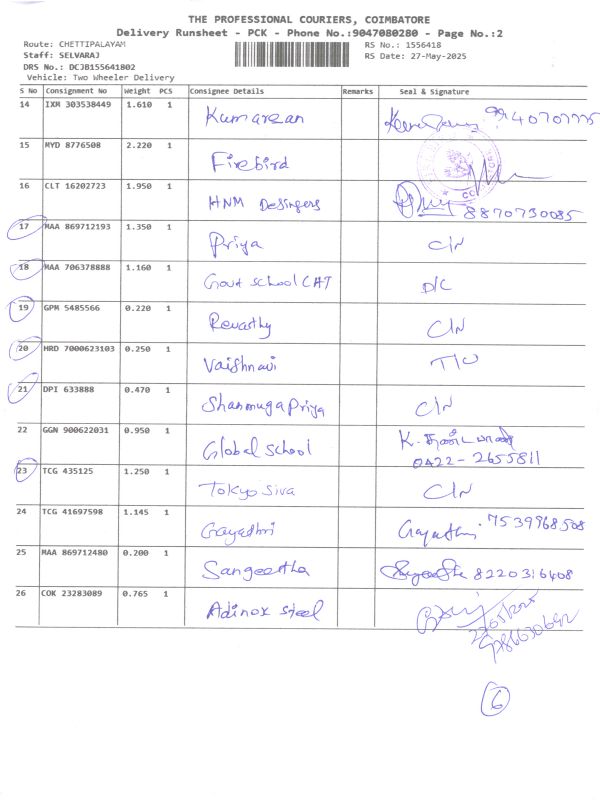 THE PROFESSIONAL COURIERS, COIMBATORE
Delivery Runsheet - PCK - Phone No.:9047080280 - Page No.:2
Route: CHETTIPALAYAM
Staff: SELVARAJ
DRS No.: DCJB155641802
Vehicle: Two Wheeler Delivery
RS No.: 1556418
RS Date: 27-May-2025
S No Consignment No Weight PCS Consignee Details Remarks Seal & Signature
14 IXM 303538449 1.610 1 Kumaresan
15 MYD 8776508 2.220 1 Firebird
16 CLT 16202723 1.950 1 HNM Dessingers 8870730085
17 MAA 869712193 1.350 1 Priya C/N
18 MAA 706378888 1.160 1 Govt school CAT D/C
19 GPM 5485566 0.220 1 Revathy C/N
20 HRD 7000623103 0.250 1 Vaishnavi
21 DPI 633888 0.470 1 Shanmuga Priya C/N
22 GGN 900622031 0.950 1 Global School
0422-2655811
23 TCG 435125 1.250 1 Tokyo Siva C/N
24 TCG 41697598 1.145 1 Gayathri Gayathri 7539968508
25 MAA 869712480 0.200 1 Sangeetha 8220316408
26 COK 23283089 0.765 1 Adinox steel
6